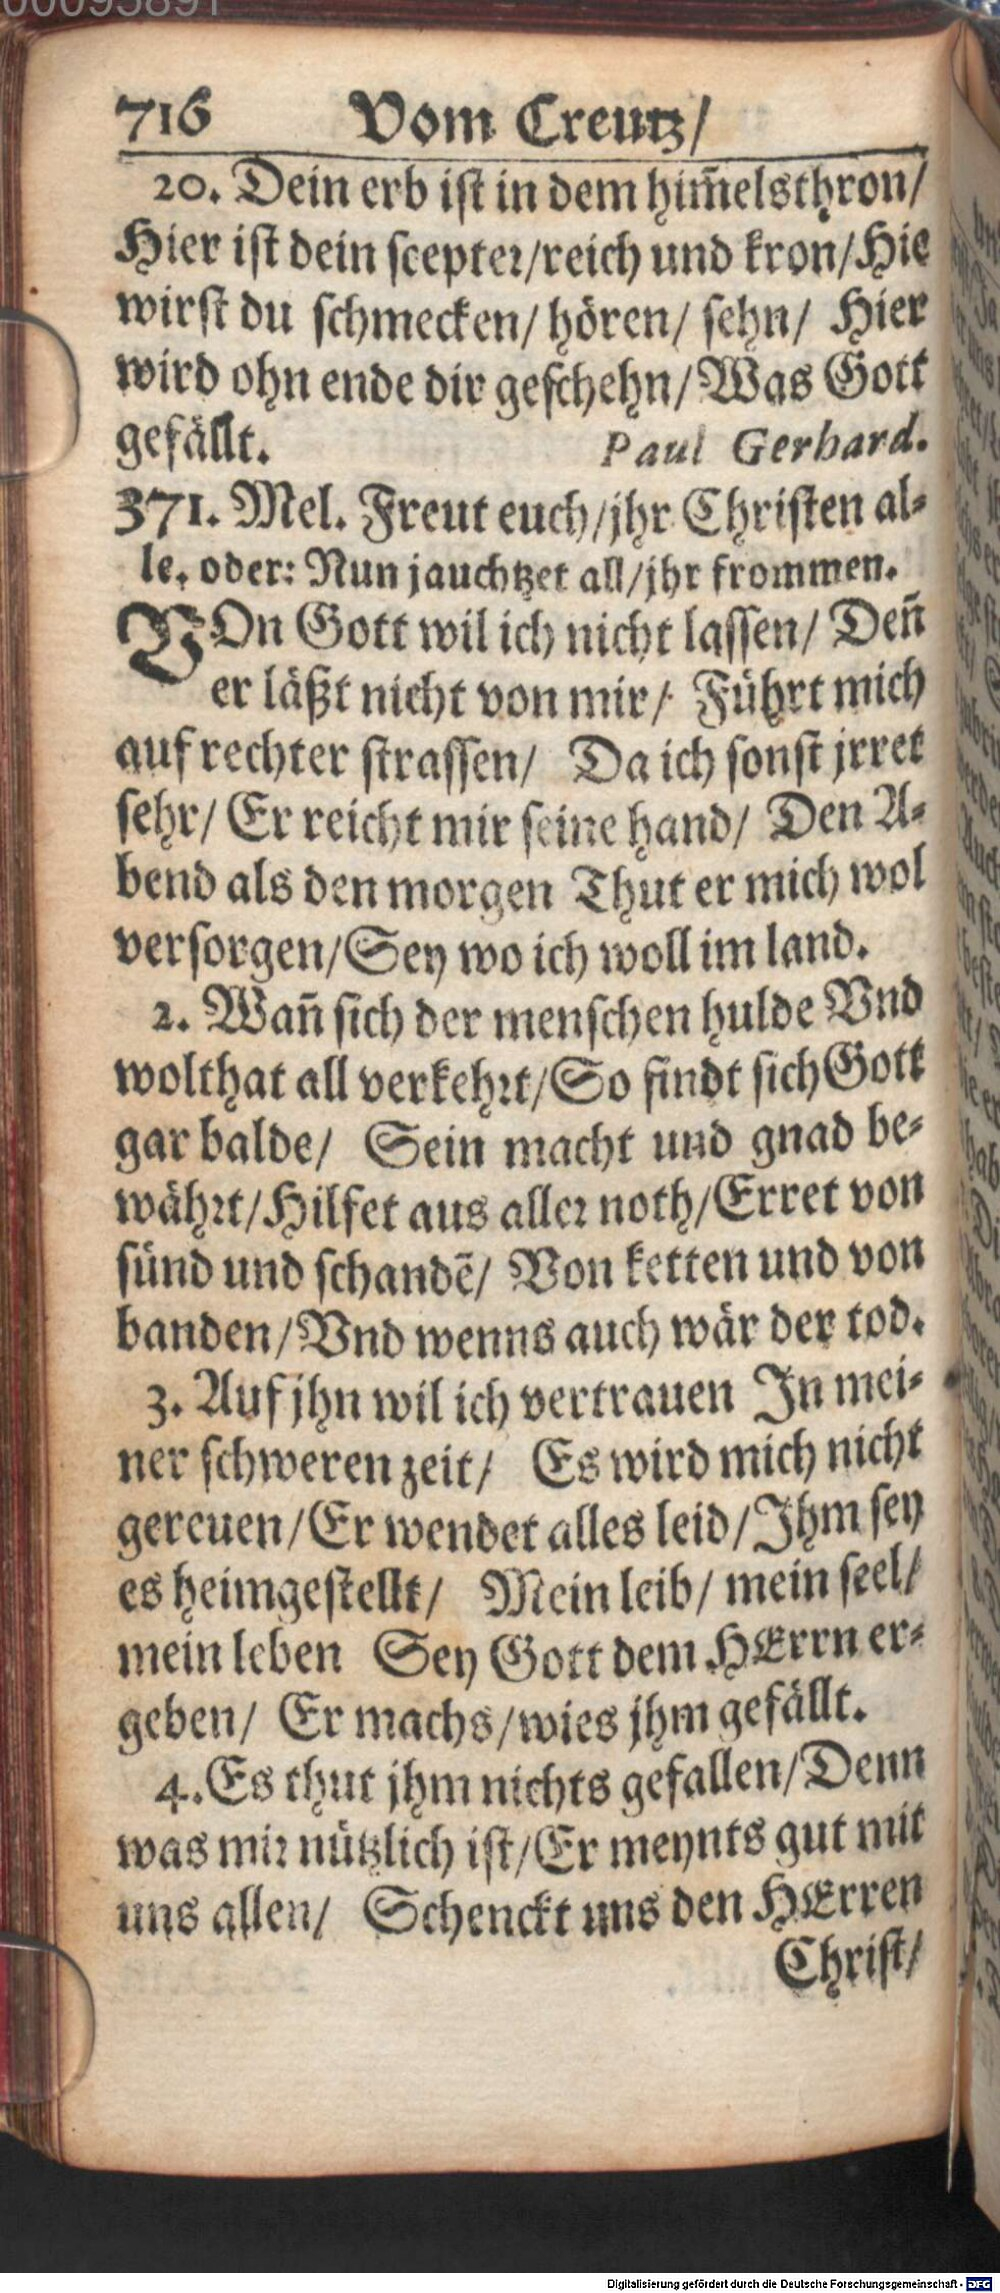 00095891
716 Vom Creutz/
20. Dein erb ist in dem him̃elsthron/
Hier ist dein scepter/reich und kron/Hie
wirst du schmecken/ hören/ sehn/ Hier
wird ohn ende dir geschehn/Was Gott
gefällt. Paul Gerhard.
371. Mel. Freut euch/jhr Christen al-
le. oder: Nun jauchtzet all/jhr frommen.
VOn Gott wil ich nicht lassen/ Deñ
er läßt nicht von mir/ Führt mich
auf rechter strassen/ Da ich sonst jrret
sehr/ Er reicht mir seine hand/ Den A-
bend als den morgen Thut er mich wol
versorgen/Sey wo ich woll im land.
2. Wañ sich der menschen hulde Vnd
wolthat all verkehrt/So findt sich Gott
gar balde/ Sein macht und gnad be-
währt/Hilfet aus aller noth/Erret von
sünd und schandẽ/ Von ketten und von
banden/Vnd wenns auch wär der tod.
3. Auf jhn wil ich vertrauen In mei-
ner schweren zeit/ Es wird mich nicht
gereuen/Er wendet alles leid/Ihm sey
es heimgestellt/ Mein leib/ mein seel/
mein leben Sey Gott dem HErrn er-
geben/ Er machs/wies jhm gefällt.
4. Es thut jhm nichts gefallen/Denn
was mir nützlich ist/Er meynts gut mit
uns allen/ Schenckt uns den HErren
Christ/
Digitalisierung gefördert durch die Deutsche Forschungsgemeinschaft - DFG